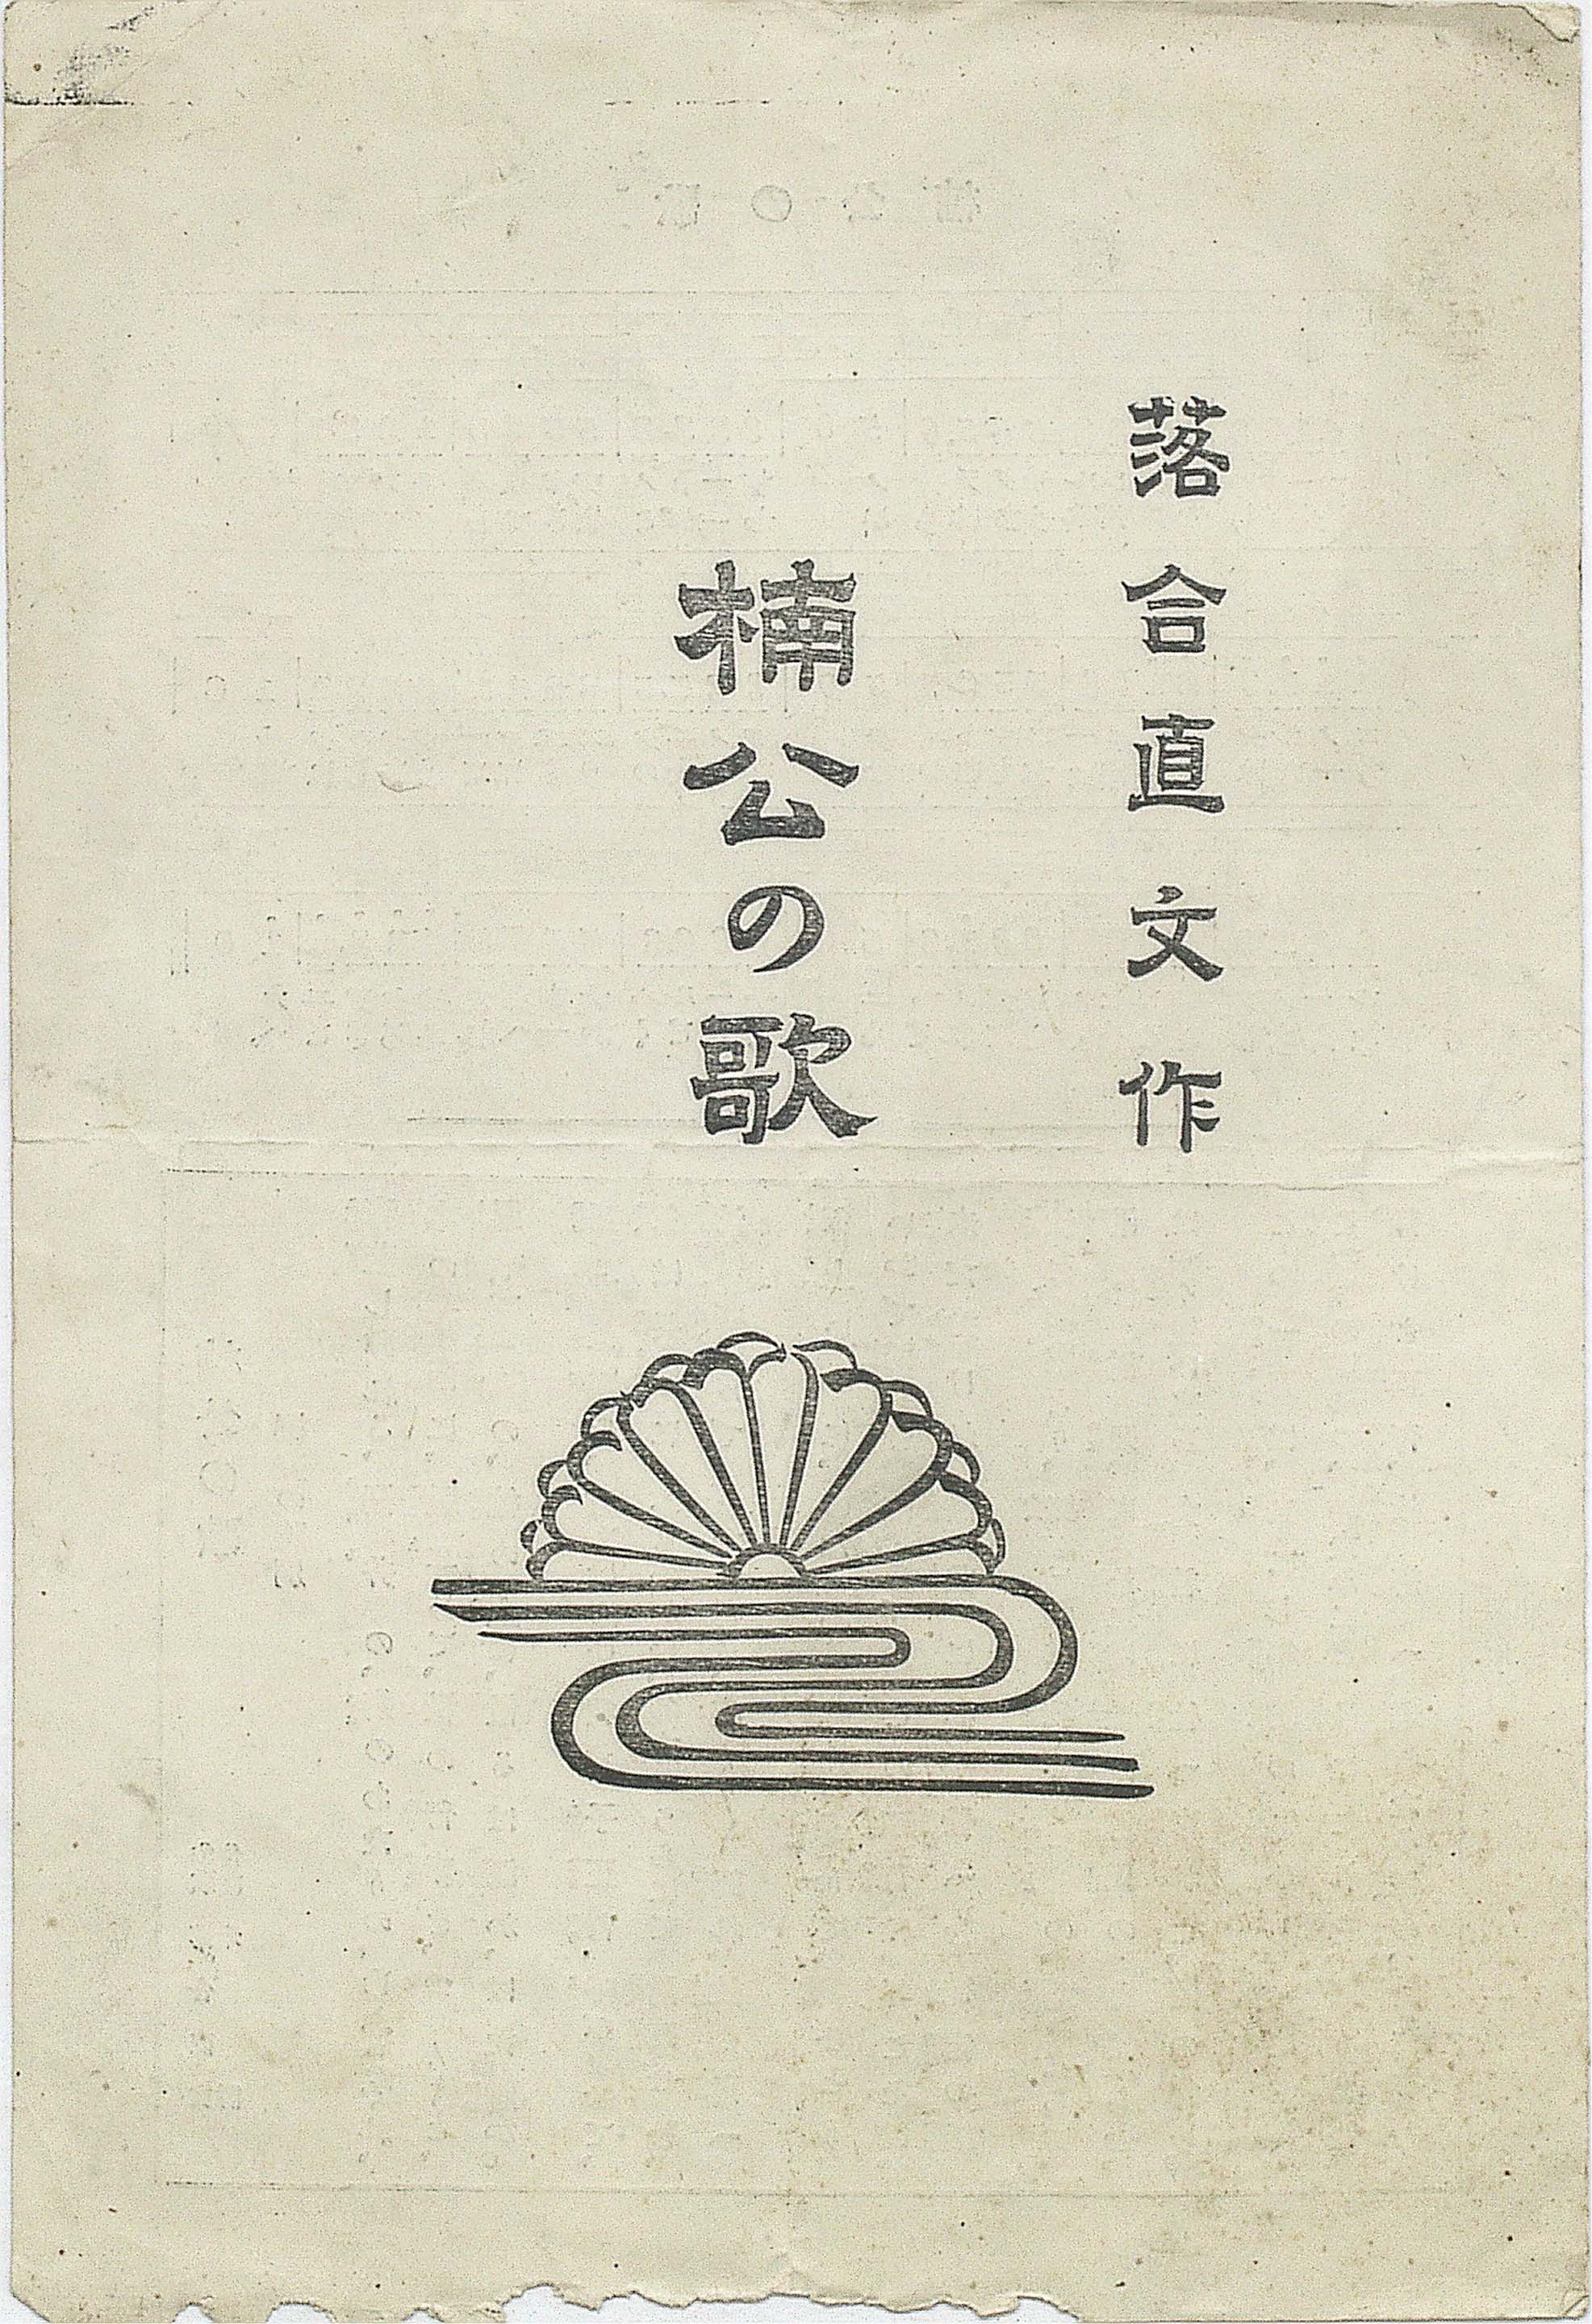 落合直文作
楠公の歌